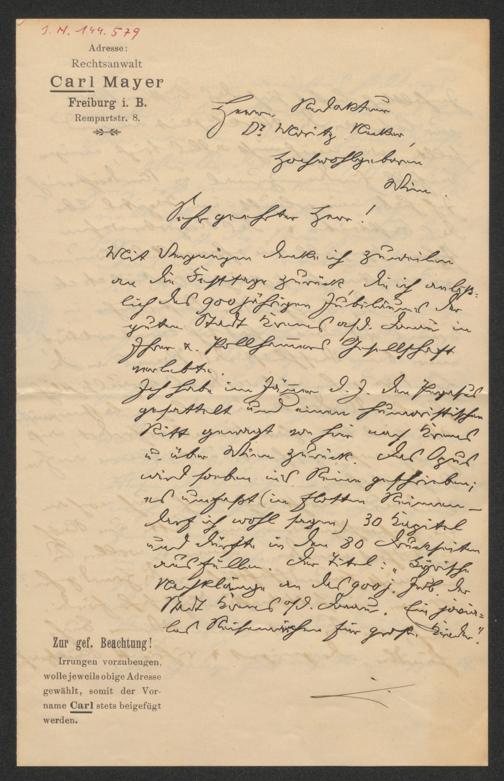 J. N. 144.579
Adresse:
Rechtsanwalt
Carl Mayer
Freiburg i. B.
Rempartstr. 8.
Herrn Redakteur
Dr Moritz Necker,
Hochwohlgeboren
Wien.
Sehr geehrter Herr!
Mit Vergnügen denke ich zuweilen
an die Festtage zurück, die ich anläß-
lich des 900jährigen Jubiläums der
guten Stadt Krems a/d. Donau in
Ihrer u. Pollhammers Gesellschaft
verlebte.
Ich habe im Jänner d. J. den Pegasus
gesattelt und einen humoristischen
Ritt gewagt von hier nach Krems
u. über Wien zurück. Das Opus
wird soeben ins Reine geschrieben;
es umfaßt (in flotten Reimen –
darf ich wohl sagen) 30 Kapitel
und dürfte in den 80 Druckseiten
ausfüllen. Der Titel: „Lyrische
Nachklänge an das 900j. Jub. der
Stadt Krems a/d. Donau. Ein jovia-
les Reisemärchen für große Kinder."
Zur gef. Beachtung!
Irrungen vorzubeugen,
wolle jeweils obige Adresse
gewählt, somit der Vor-
name Carl stets beigefügt
werden.